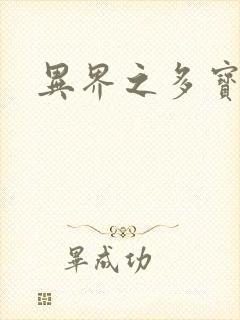 異界之多寶
畢成功